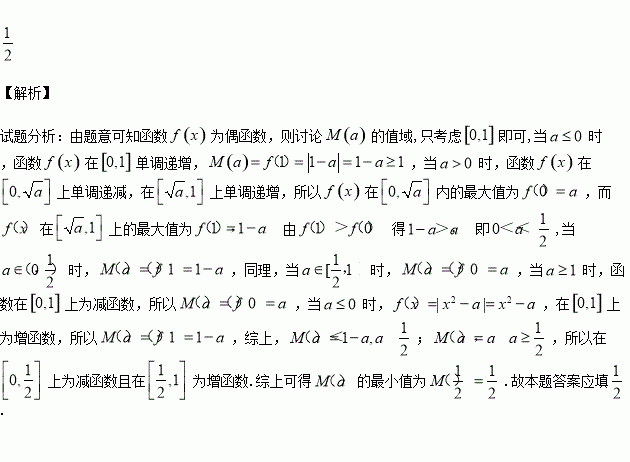 1/2
【解析】
试题分析：由题意可知函数 f(x) 为偶函数，则讨论 M(a) 的值域,只考虑 [0,1] 即可,当 a≤0 时
，函数 f(x) 在 [0,1] 单调递增，M(a)=f(1)=|1-a|=1-a≥1，当 a>0 时，函数 f(x) 在
[0,√a] 上单调递减，在 [√a,1] 上单调递增，所以 f(x) 在 [0,√a] 内的最大值为 f(0)=a，而
f(x) 在 [√a,1] 上的最大值为 f(1)=1-a 由 f(1)>f(0) 得 1-a>a 即 0<a<1/2,当
a∈(0,1/2) 时，M(a)=f(1)=1-a，同理，当 a∈[1/2,1) 时，M(a)=f(0)=a，当 a≥1 时，函
数在 [0,1] 上为减函数，所以 M(a)=f(0)=a，当 a≤0 时，f(x)=|x²-a|=x²-a，在 [0,1] 上
为增函数，所以 M(a)=f(1)=1-a，综上，M(a)=1-a,a<1/2；M(a)=a a≥1/2，所以在
[0,1/2] 上为减函数且在 [1/2,1] 为增函数.综上可得 M(a) 的最小值为 M(1/2)=1/2.故本题答案应填 1/2
.